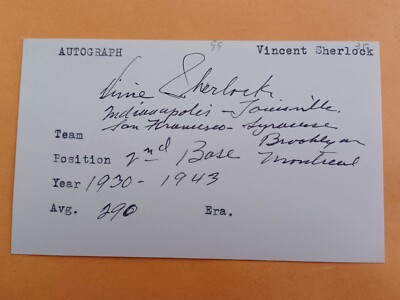 AUTOGRAPH Vincent Sherlock
Vince Sherlock
Indianapolis - Louisville.
San Francisco - Syracuse
Team Brooklyn
Position 2nd Base Montreal
Year 1930 - 1943
Avg. 290 Era.